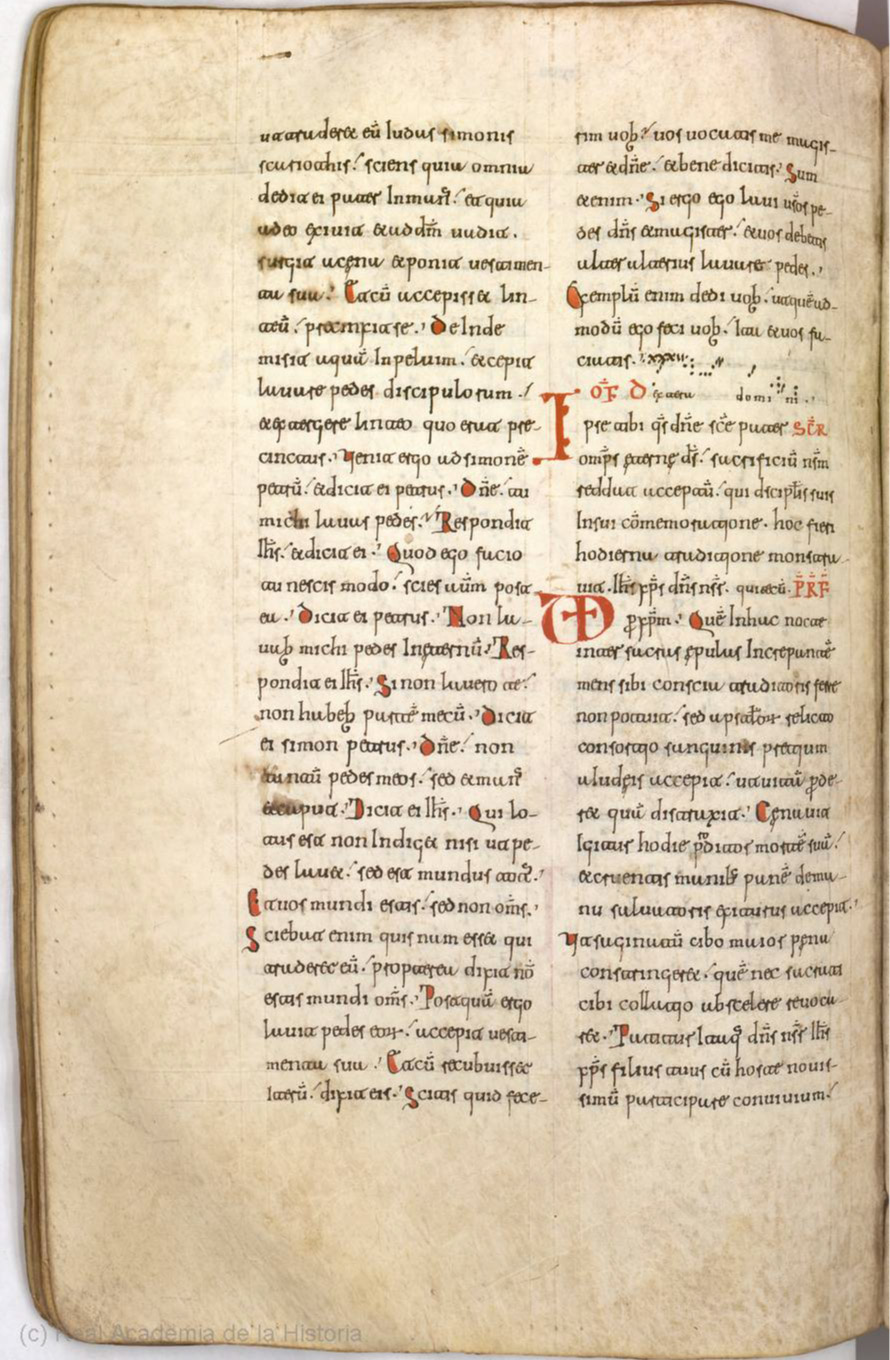 ut traderet eū Iudas simonis
scariothis. sciens quia omnia
dedit ei pater In manꝰ. et quia
a deo exivit et ad dm̄ vadit.
surgit a cena et ponit vestimen-
ta sua. Et cū accepisset lin-
teū. precinxit se. De Inde
misit aquā In peluim. et cepit
lauare pedes discipulorum.
et extergere linteo quo erat pre-
cinctus. Uenit ergo ad simonē
petrū. et dicit ei petrus. Dn̄e. tu
michi lauas pedes. Respondit
Ihs̄. et dicit ei. Quod ego facio
tu nescis modo. scies aūm post-
ea. Dicit ei petrus. Non la-
uab michi pedes In eternū. Res-
pondit ei Ihs̄. Si non lauero te.
non habeb partē mecū. Dicit
ei simon petrus. Dn̄e. non
tantū pedes meos. sed et manꝰ
et caput. Dicit ei Ihs̄. Qui lo-
tus est non Indiget nisi ut pe-
des lauet. sed est mundus totꝰ.
Et uos mundi estis. sed non om̄s.
Sciebat enim quis nam esset qui
traderet eū. propterea dixit nō
estis mundi om̄s. Postquā ergo
lauit pedes eoꝝ. accepit uesti-
menta sua. Et cū recubuisset
Iterū. dixit eis. Scitis quid fece-
rim uob. uos uocatis me magis-
ter et dn̄e. et bene dicitis. Sum
etenim. Si ergo ego laui ur̄os pe-
des dn̄s et magister. et uos debetis
alter alterius lauare pedes.
Exemplū enim dedi uob. ut quē ad-
modū ego feci uob. Ita et uos fa-
ciatis.
domini
Ipse tibi qs̄ dn̄e sc̄e pater
omp̄s eterne ds̄. sacrificiū nsm̄
reddat acceptū. qui discplis suis
In sui cōmemoratione. hoc fieri
hodierna traditione monstra-
uit. Ihs̄ xp̄s dn̄s nsr̄. qui tecū.
p̄ xp̄m. Quē In hac nocte
inter sacras epulas Increpantē
mens sibi conscia traditoris ferre
non potuit. sed apstoloꝝ relicto
consortio sanguinis pretium
a Iudeis accepit. ut uitā perde-
ret quā distraxit. Cenauit
Igitur hodie proditor mortē suā.
et cruentis manib panē de ma-
nu saluatoris exiturus accepit.
Ut saginatū cibo maior pena
constringeret. quē nec sacrati
cibi collatio ab scelere reuoca-
ret. Patitur Itaq dn̄s nsr̄ Ihs̄
xp̄s filius tuus cū hoste nouis-
simū participare conuiuium.